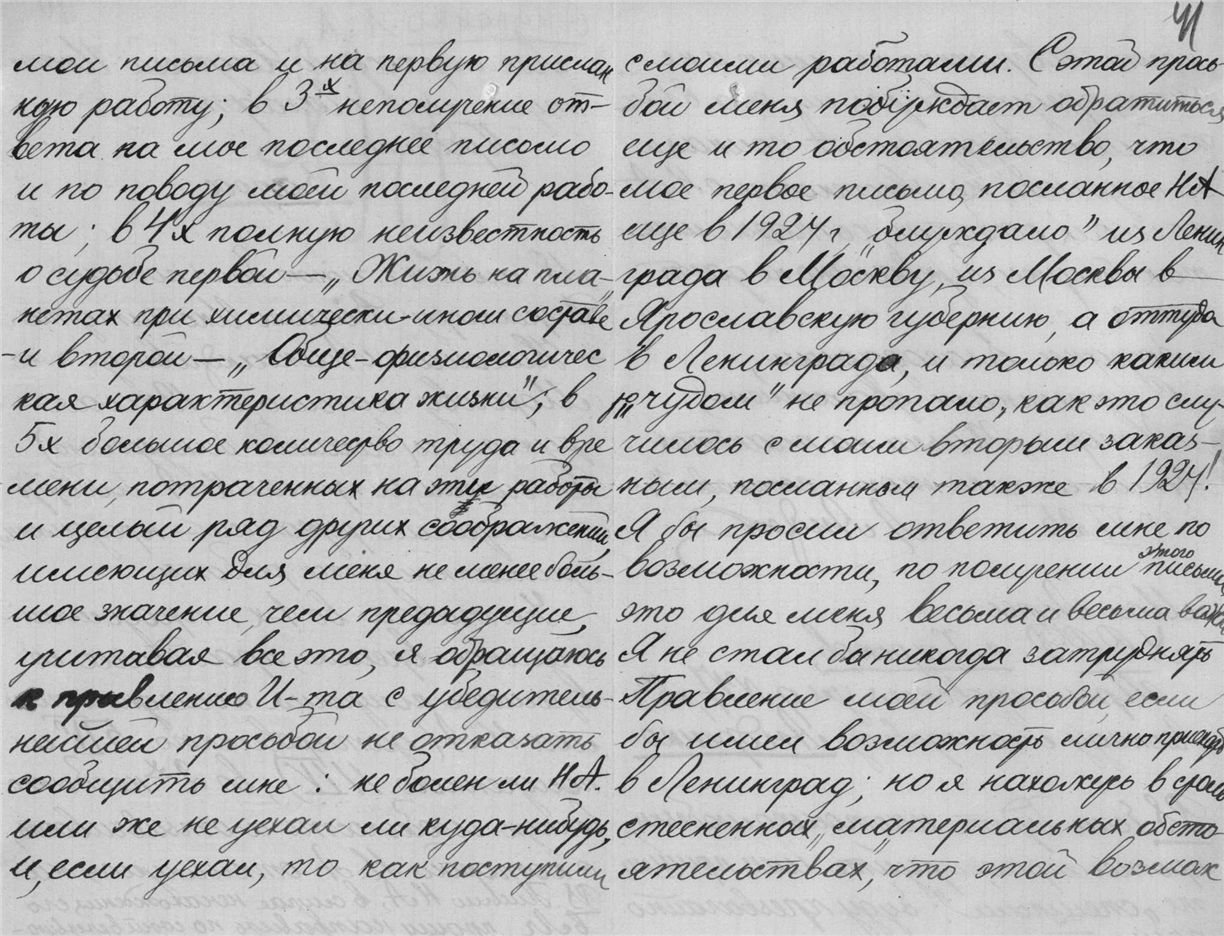 мои письма и на первую прислан
ную работу; в 3х неполучение от-
вета на мое последнее письмо
и по поводу моей последней рабо-
ты; в 4х полную неизвестность
о судьбе первой — „Жизнь на пла-
нетах при химически-ином составе"
- и второй — „Обще-физиологичес
кая характеристика жизни"; в
5х большое количество труда и вре
мени, потраченных на эти работы
и целый ряд других соображений,
имеющих для меня не менее боль-
шое значение, чем предадущие,
учитавая все это, я обращаюсь
к правлению И-та с убедитель-
нейшей просьбой не отказать
сообщить мне: не болен ли Н.А.
или же не уехал ли куда-нибудь,
и, если уехал, то как поступили
41
с моими работами. С этой прось-
бой меня побуждает обратиться
еще и то обстоятельство, что
мое первое письмо, посланное НА
еще в 1924 г, „блуждало" из Ленин
града в Москву, из Москвы в
Ярославскую губернию, а оттуда
в Ленинград, и только каким
то „чудом" не пропало, как это слу-
чилось с моим вторым заказ-
ным, посланным также в 1924!
Я бы просил ответить мне по
возможности, по получении этого письма,
это для меня весьма и весьма важно
Я не стал бы никогда затруднять
Правление моей просьбой, если
бы имел возможность лично приехать
в Ленинград; но я нахожусь в столь
стесненных „материальных обсто
ятельствах", что этой возмож